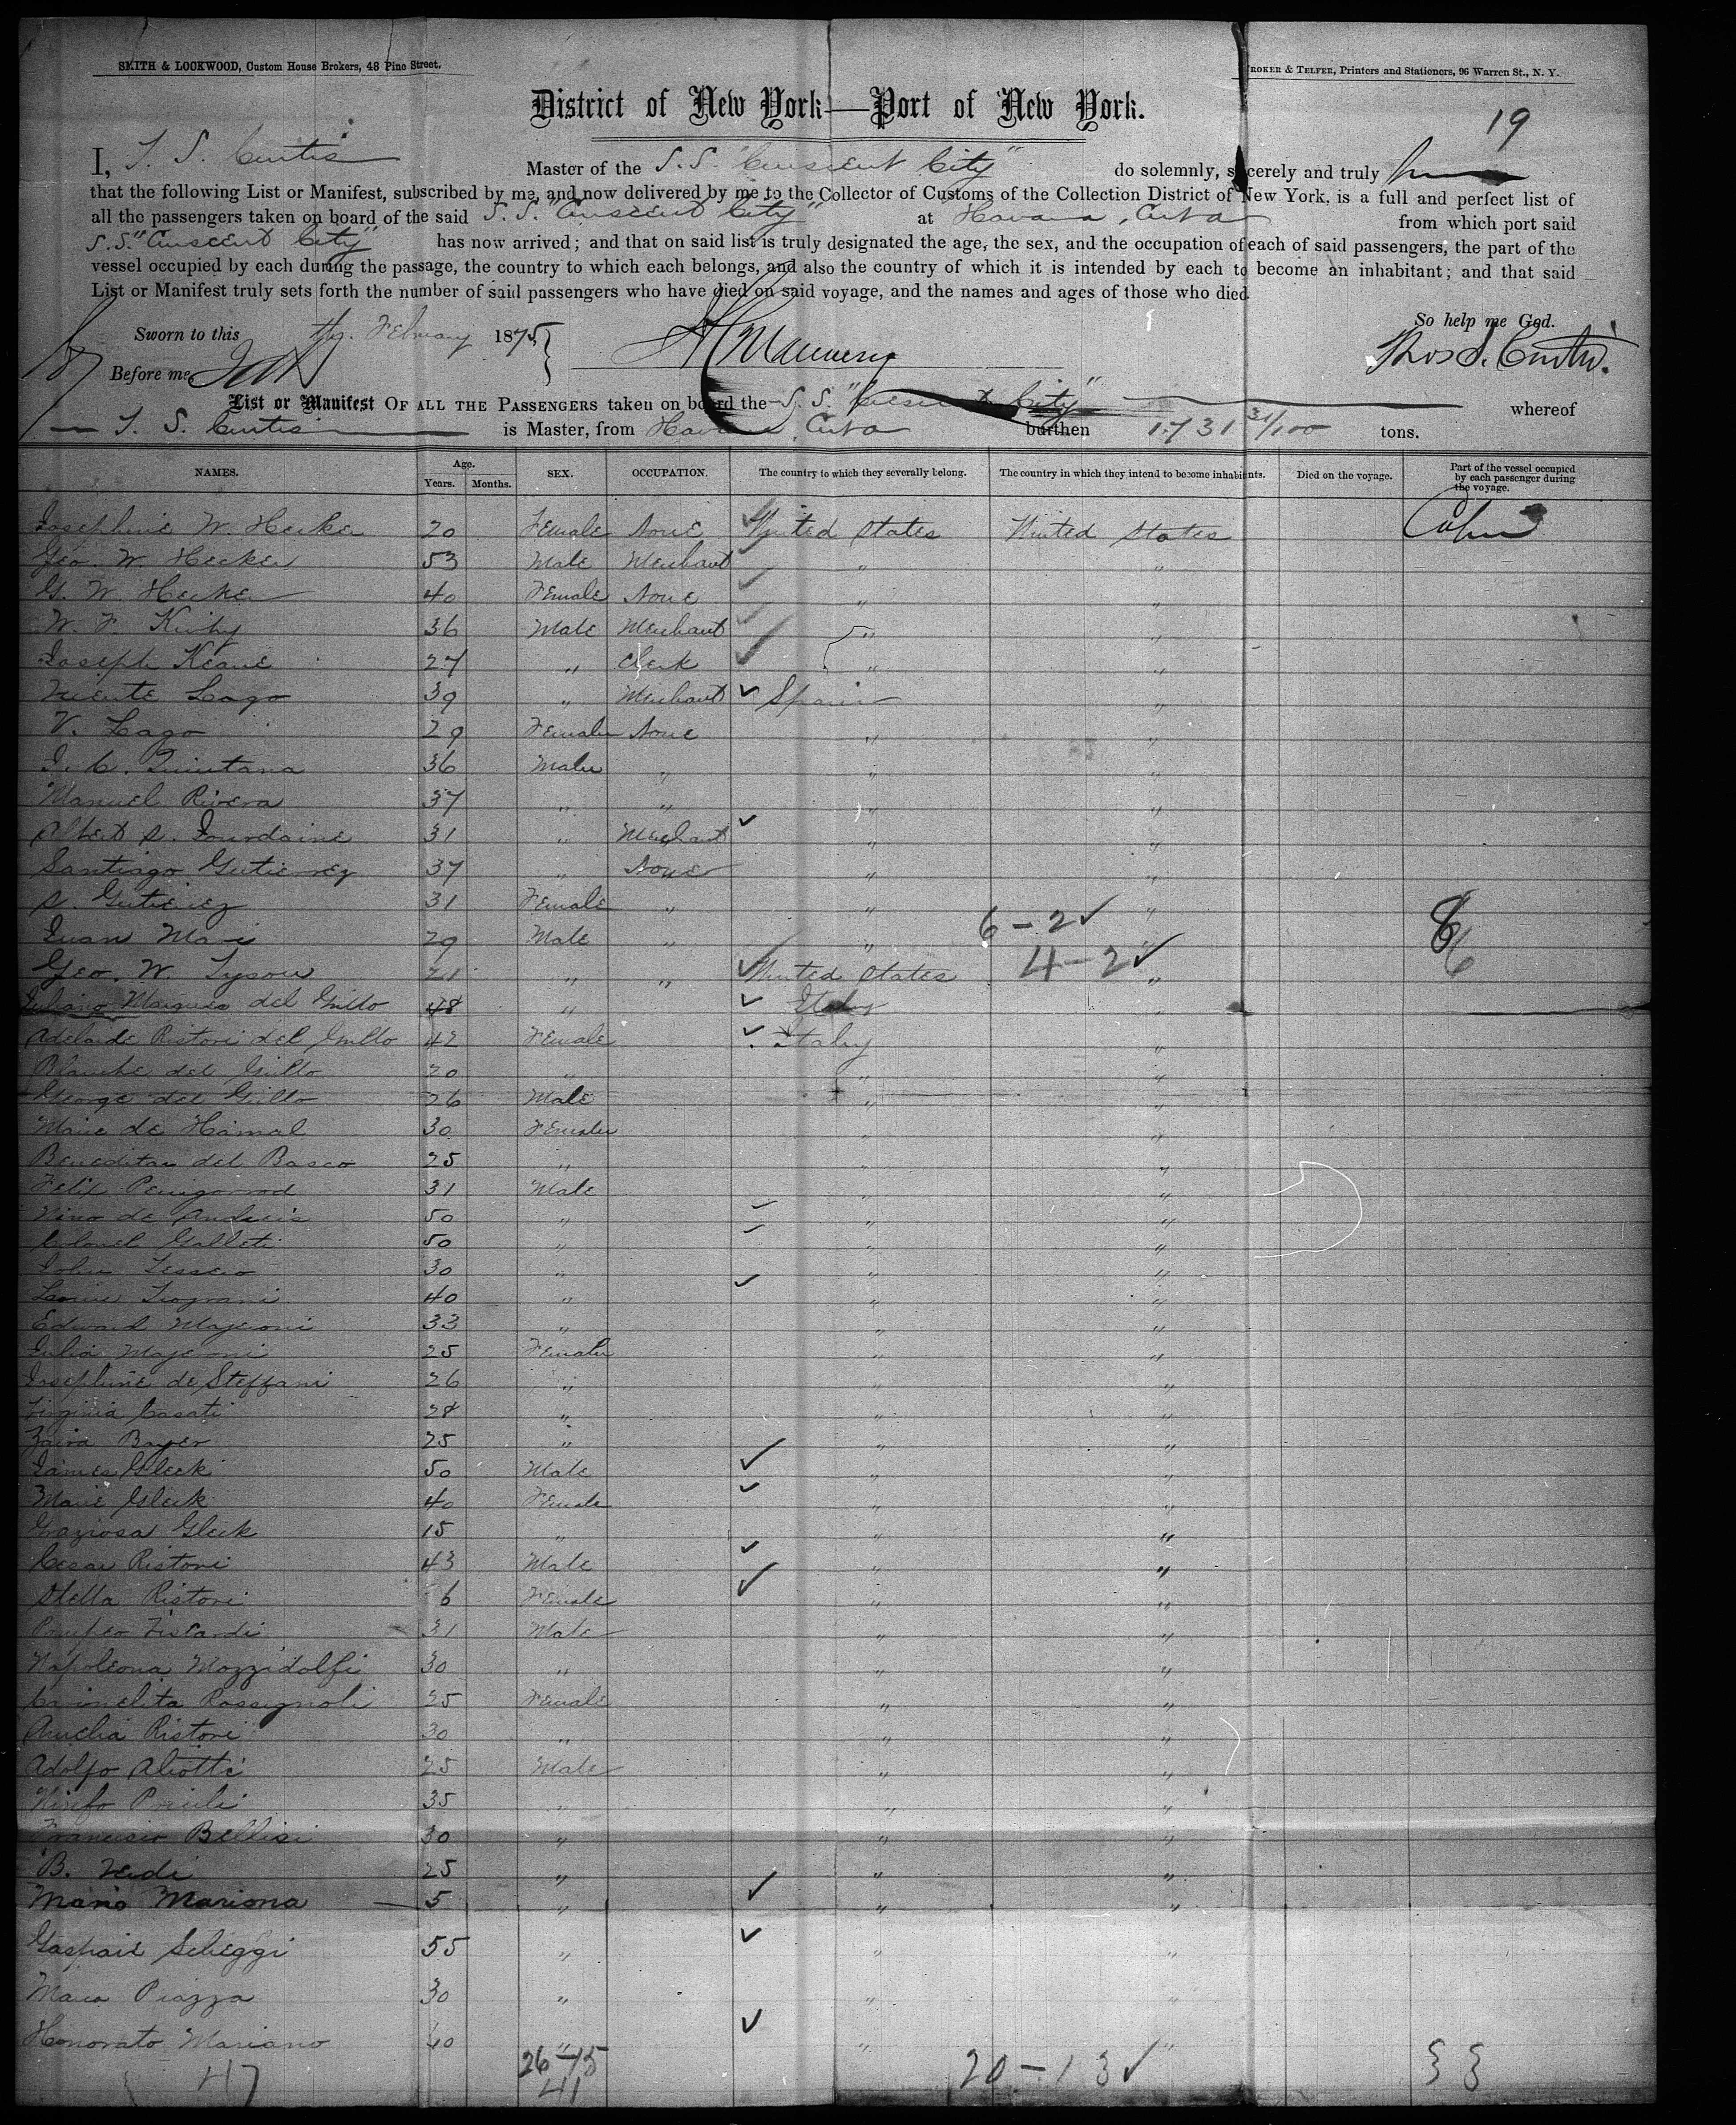 SMITH & LOCKWOOD, Custom House Brokers, 48 Pine Street.
ROKER & TELFER, Printers and Stationers, 96 Warren St., N. Y.
District of New York—Port of New York.
19
I, T. S. Curtis Master of the S.S. "Crescent City" do solemnly, sincerely and truly
that the following List or Manifest, subscribed by me, and now delivered by me to the Collector of Customs of the Collection District of New York, is a full and perfect list of
all the passengers taken on board of the said S.S. "Crescent City" at Havana, Cuba from which port said
S.S. "Crescent City" has now arrived; and that on said list is truly designated the age, the sex, and the occupation of each of said passengers, the part of the
vessel occupied by each during the passage, the country to which each belongs, and also the country of which it is intended by each to become an inhabitant; and that said
List or Manifest truly sets forth the number of said passengers who have died on said voyage, and the names and ages of those who died.
So help me God.
Sworn to this February 1875
Thos S. Curtis.
Before me,
List or Manifest OF ALL THE PASSENGERS taken on board the S.S. "Crescent City" whereof
T. S. Curtis is Master, from Havana, Cuba burthen 1731 31/100 tons.
NAMES. Age. Years. Months. SEX. OCCUPATION. The country to which they severally belong. The country in which they intend to become inhabitants. Died on the voyage. Part of the vessel occupied by each passenger during the voyage.
Josephine W. Hecker 20 Female None United States United States Cabin
Geo. W. Hecker 53 Male Merchant " "
G. W. Hecker 40 Female None " "
W. F. Kirby 36 Male Merchant " "
Joseph Keane 27 " Clerk " "
Vicente Lago 39 " Merchant Spain "
V. Lago 29 Female None " "
J. C. Quintana 36 Male " " "
Manuel Rivera 37 " " " "
Albert S. Jourdaine 31 " Merchant " "
Santiago Gutierrez 37 " None " "
S. Gutierrez 31 Female " " "
6-2
Juan Mari 29 Male " " "
4-2
Geo. W. Tyson 21 " " United States "
Marques del Grillo 48 " Italy "
Adelaide Ristori del Grillo 42 Female Italy "
Blanche del Grillo 20 " " "
George del Grillo 26 Male " "
Marie de Hamal 30 Female " "
Beneditan del Basco 25 " " "
Felix 31 Male " "
Nino de Andreis 50 " " "
Galleti 50 " " "
John Tessero 30 " " "
40 " " "
Edward Majeroni 33 " " "
Julia Majeroni 25 Female " "
Josephine de Steffani 26 " " "
Virginia Casati 28 " " "
Zaira Bayer 25 " " "
James Gleek 50 Male " "
Marie Gleek 40 Female " "
Graziosa Gleek 15 " " "
Cesar Ristori 43 Male " "
Stella Ristori 6 Female " "
Pompeo 31 Male " "
Napoleona Mozzidolfi 30 " " "
Carmelita Rossignoli 25 Female " "
Amelia Ristori 30 " " "
Adolfo Aliotti 25 Male " "
35 " " "
Francisco Bellisi 30 " " "
B. Verdi 25 " " "
Mario Mariona 5 " " "
Gaspare Scheggi 55 " " "
Piazza 30 " " "
Honorato Mariano 40 " " "
47 26-15 20-13 33
41